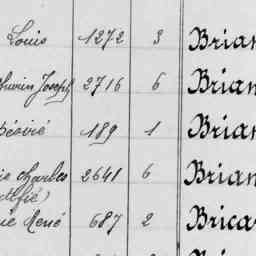 Louis 1272 3 Brian
Joseph 2716 6 Brian
Désiré 189 1 Brian
Charles 2641 6 Brian
René 687 2 Brica